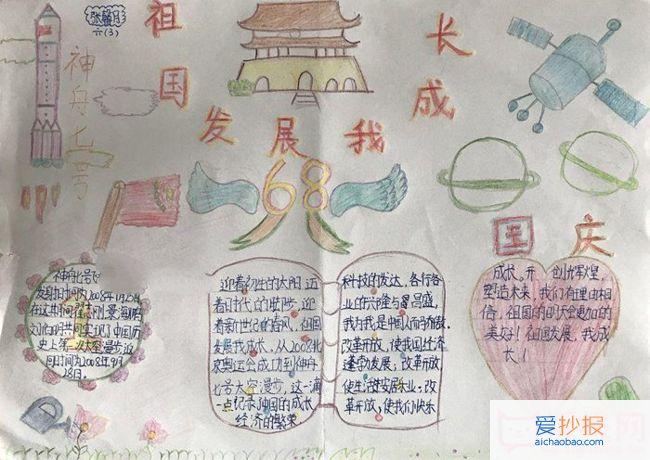 六(3)
祖国发展我长成
神舟七号
68
国庆
神舟七号飞
史上第一次太空漫步返
回时间为2008年9月
28日。
迎着初生的太阳,迈
着时代的步陟,迎
着新世纪的春风,祖国
发展我成长,从2008北
京奥运会成功到神舟
七号太空漫步,这一滴
一点记录神国的成长
经济的繁荣
科技的发达,各行各
业的兴隆与昌盛,
我为我是中国人而骄傲。
改革开放,使我国经济
蓬勃发展;改革开放,
使生活安居乐业;改
革开放,使我们快乐
成长。开 创辉煌
塑造未来,我们有理由相
信,祖国的明天会更加的
美好!祖国发展,我成
长!
爱抄报
aichaobao.com